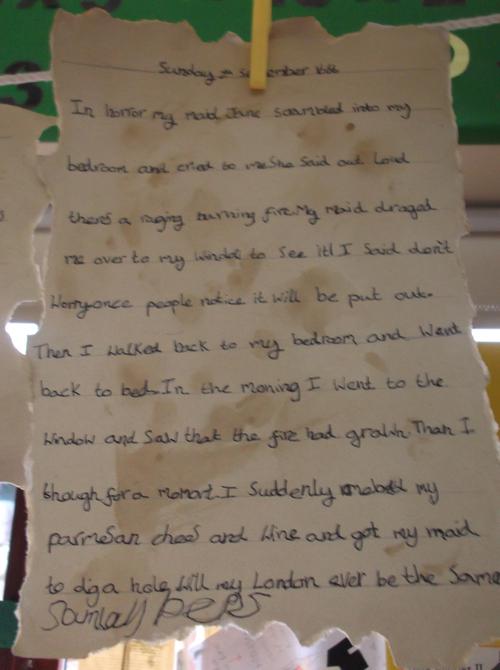 Sunday 2nd September 1666
In horror my maid Jane scambled into my
bedroom and cried to me.She Said out Loud
there's a raging burning fire.My maid draged
me over to my window to See it! I Said don't
Worry once people notice it will be put out.
Then I walked back to my bedroom and Went
back to bed.In the moning I Went to the
window and Saw that the fire had grown.Than I
though for a momart.I Suddenly my
parmesan chees and Wine and got my maid
to dig a hole.Will my London ever be the Same